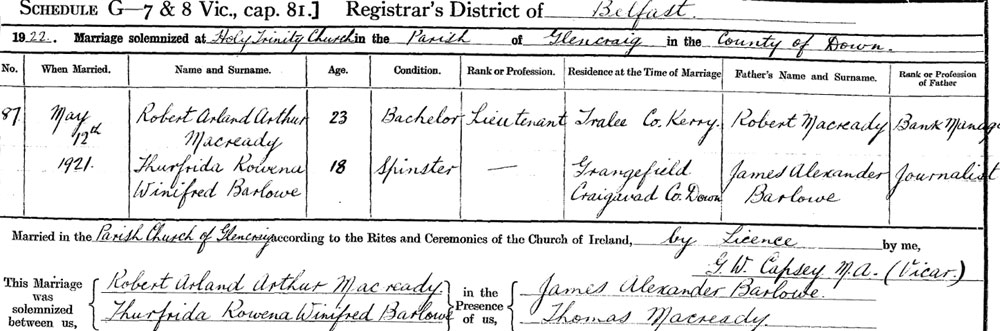 SCHEDULE G—7 & 8 Vic., cap. 81.] Registrar's District of Belfast.
1922. Marriage solemnized at Holy Trinity Church in the Parish of Glencraig in the County of Down.
No. When Married. Name and Surname. Age. Condition. Rank or Profession. Residence at the Time of Marriage Father's Name and Surname. Rank or Profession of Father
87 May 12th 1921. Robert Arland Arthur Macready 23 Bachelor Lieutenant Tralee Co. Kerry. Robert Macready Bank Manag
Thurfrida Rowena Winifred Barlowe 18 Spinster — Grangefield Craigavad Co. Down James Alexander Barlowe Journalist
Married in the Parish Church of Glencraig according to the Rites and Ceremonies of the Church of Ireland, by Licence by me,
G. W. Capsey M.A. (Vicar.)
This Marriage was solemnized between us, Robert Arland Arthur Macready in the Presence of us, James Alexander Barlowe.
Thurfrida Rowena Winifred Barlowe Thomas Macready